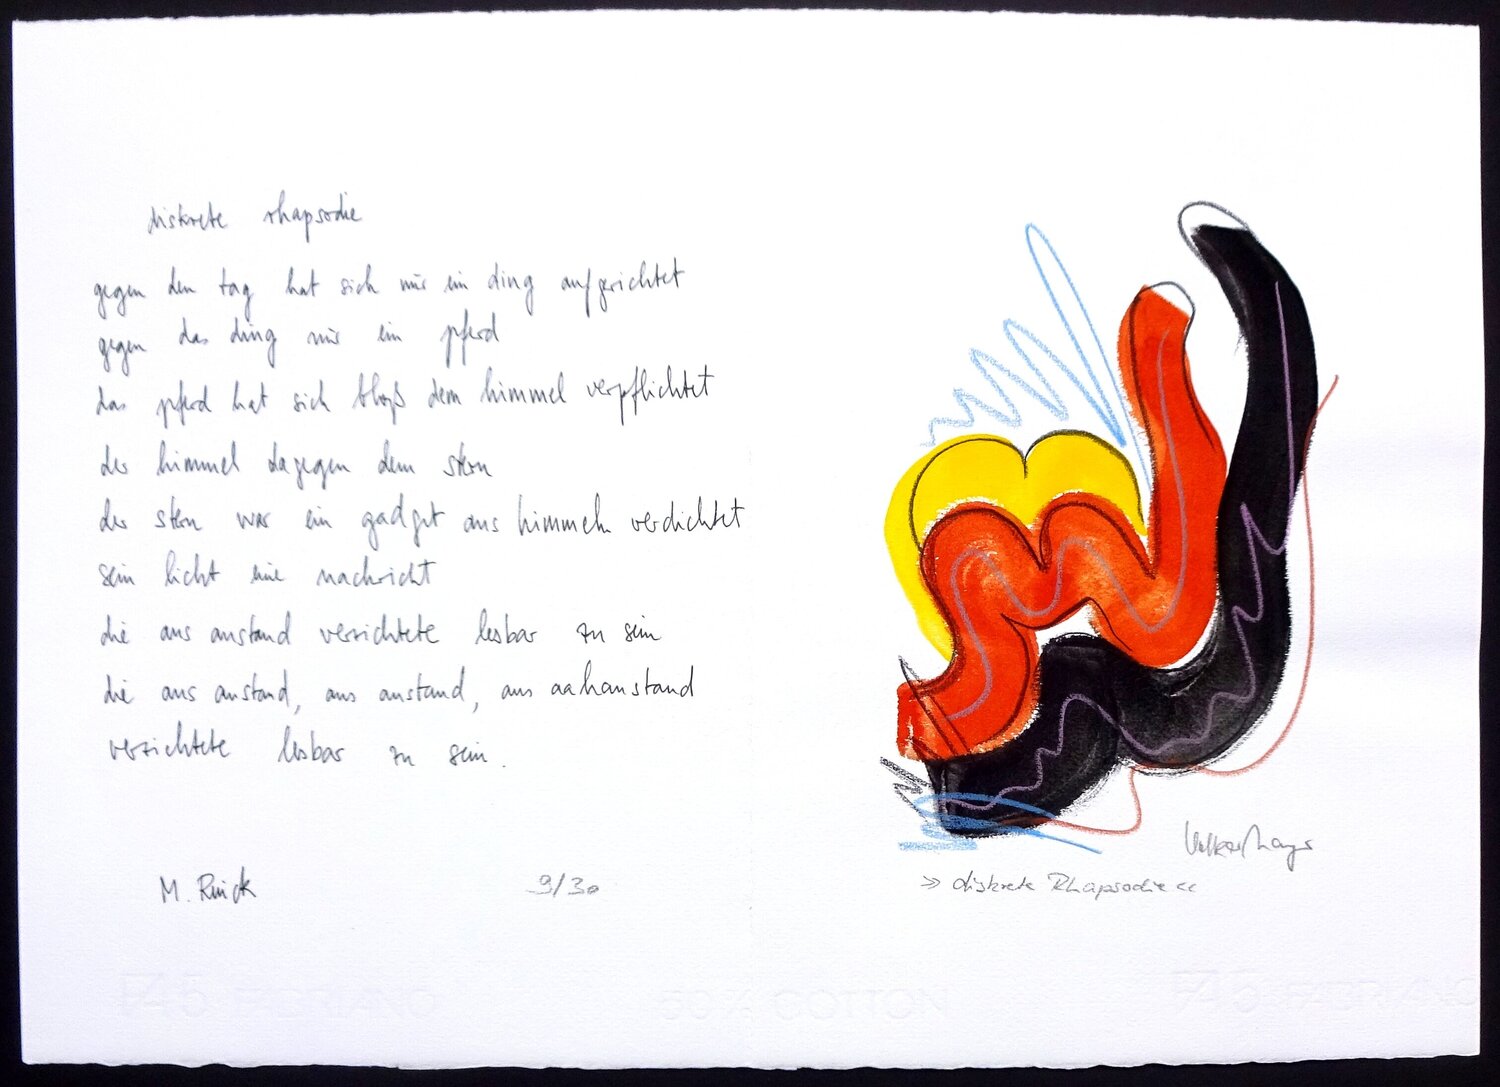 diskrete rhapsodie
gegen den tag hat sich mir ein ding aufgerichtet
gegen das ding mir ein pferd
das pferd hat sich bloß dem himmel verpflichtet
der himmel dagegen dem stern
der stern war ein gadget aus himmeln verdichtet
sein licht eine nachricht
die aus anstand verzichtete lesbar zu sein
die aus anstand, aus anstand, aus aahanstand
verzichtete lesbar zu sein.
M. Rinck
9/30
Volker Mayr
>> diskrete Rhapsodie <<
F4.5 FABRIANO
50% COTTON
FABRIANO